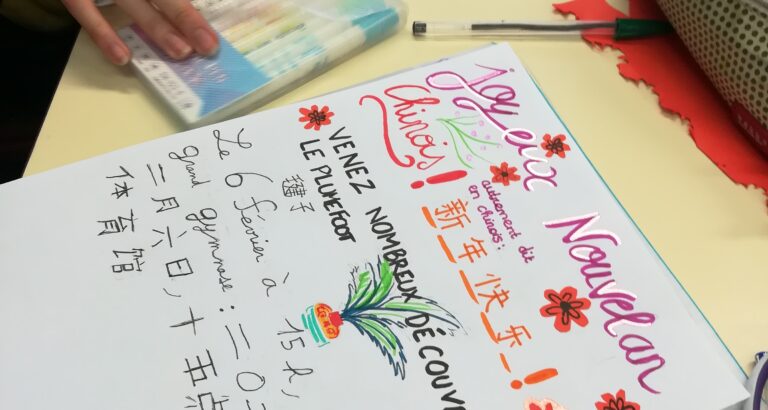 joyeux Nouvel an
Chinois !
autrement dit
en chinois :
新年快乐！
VENEZ NOMBREUX DÉCOUV
LE PLUMEFOOT
子
Le 6 février à 15h,
grand gymnase : 二〇二
二月六日，十五点
体育馆